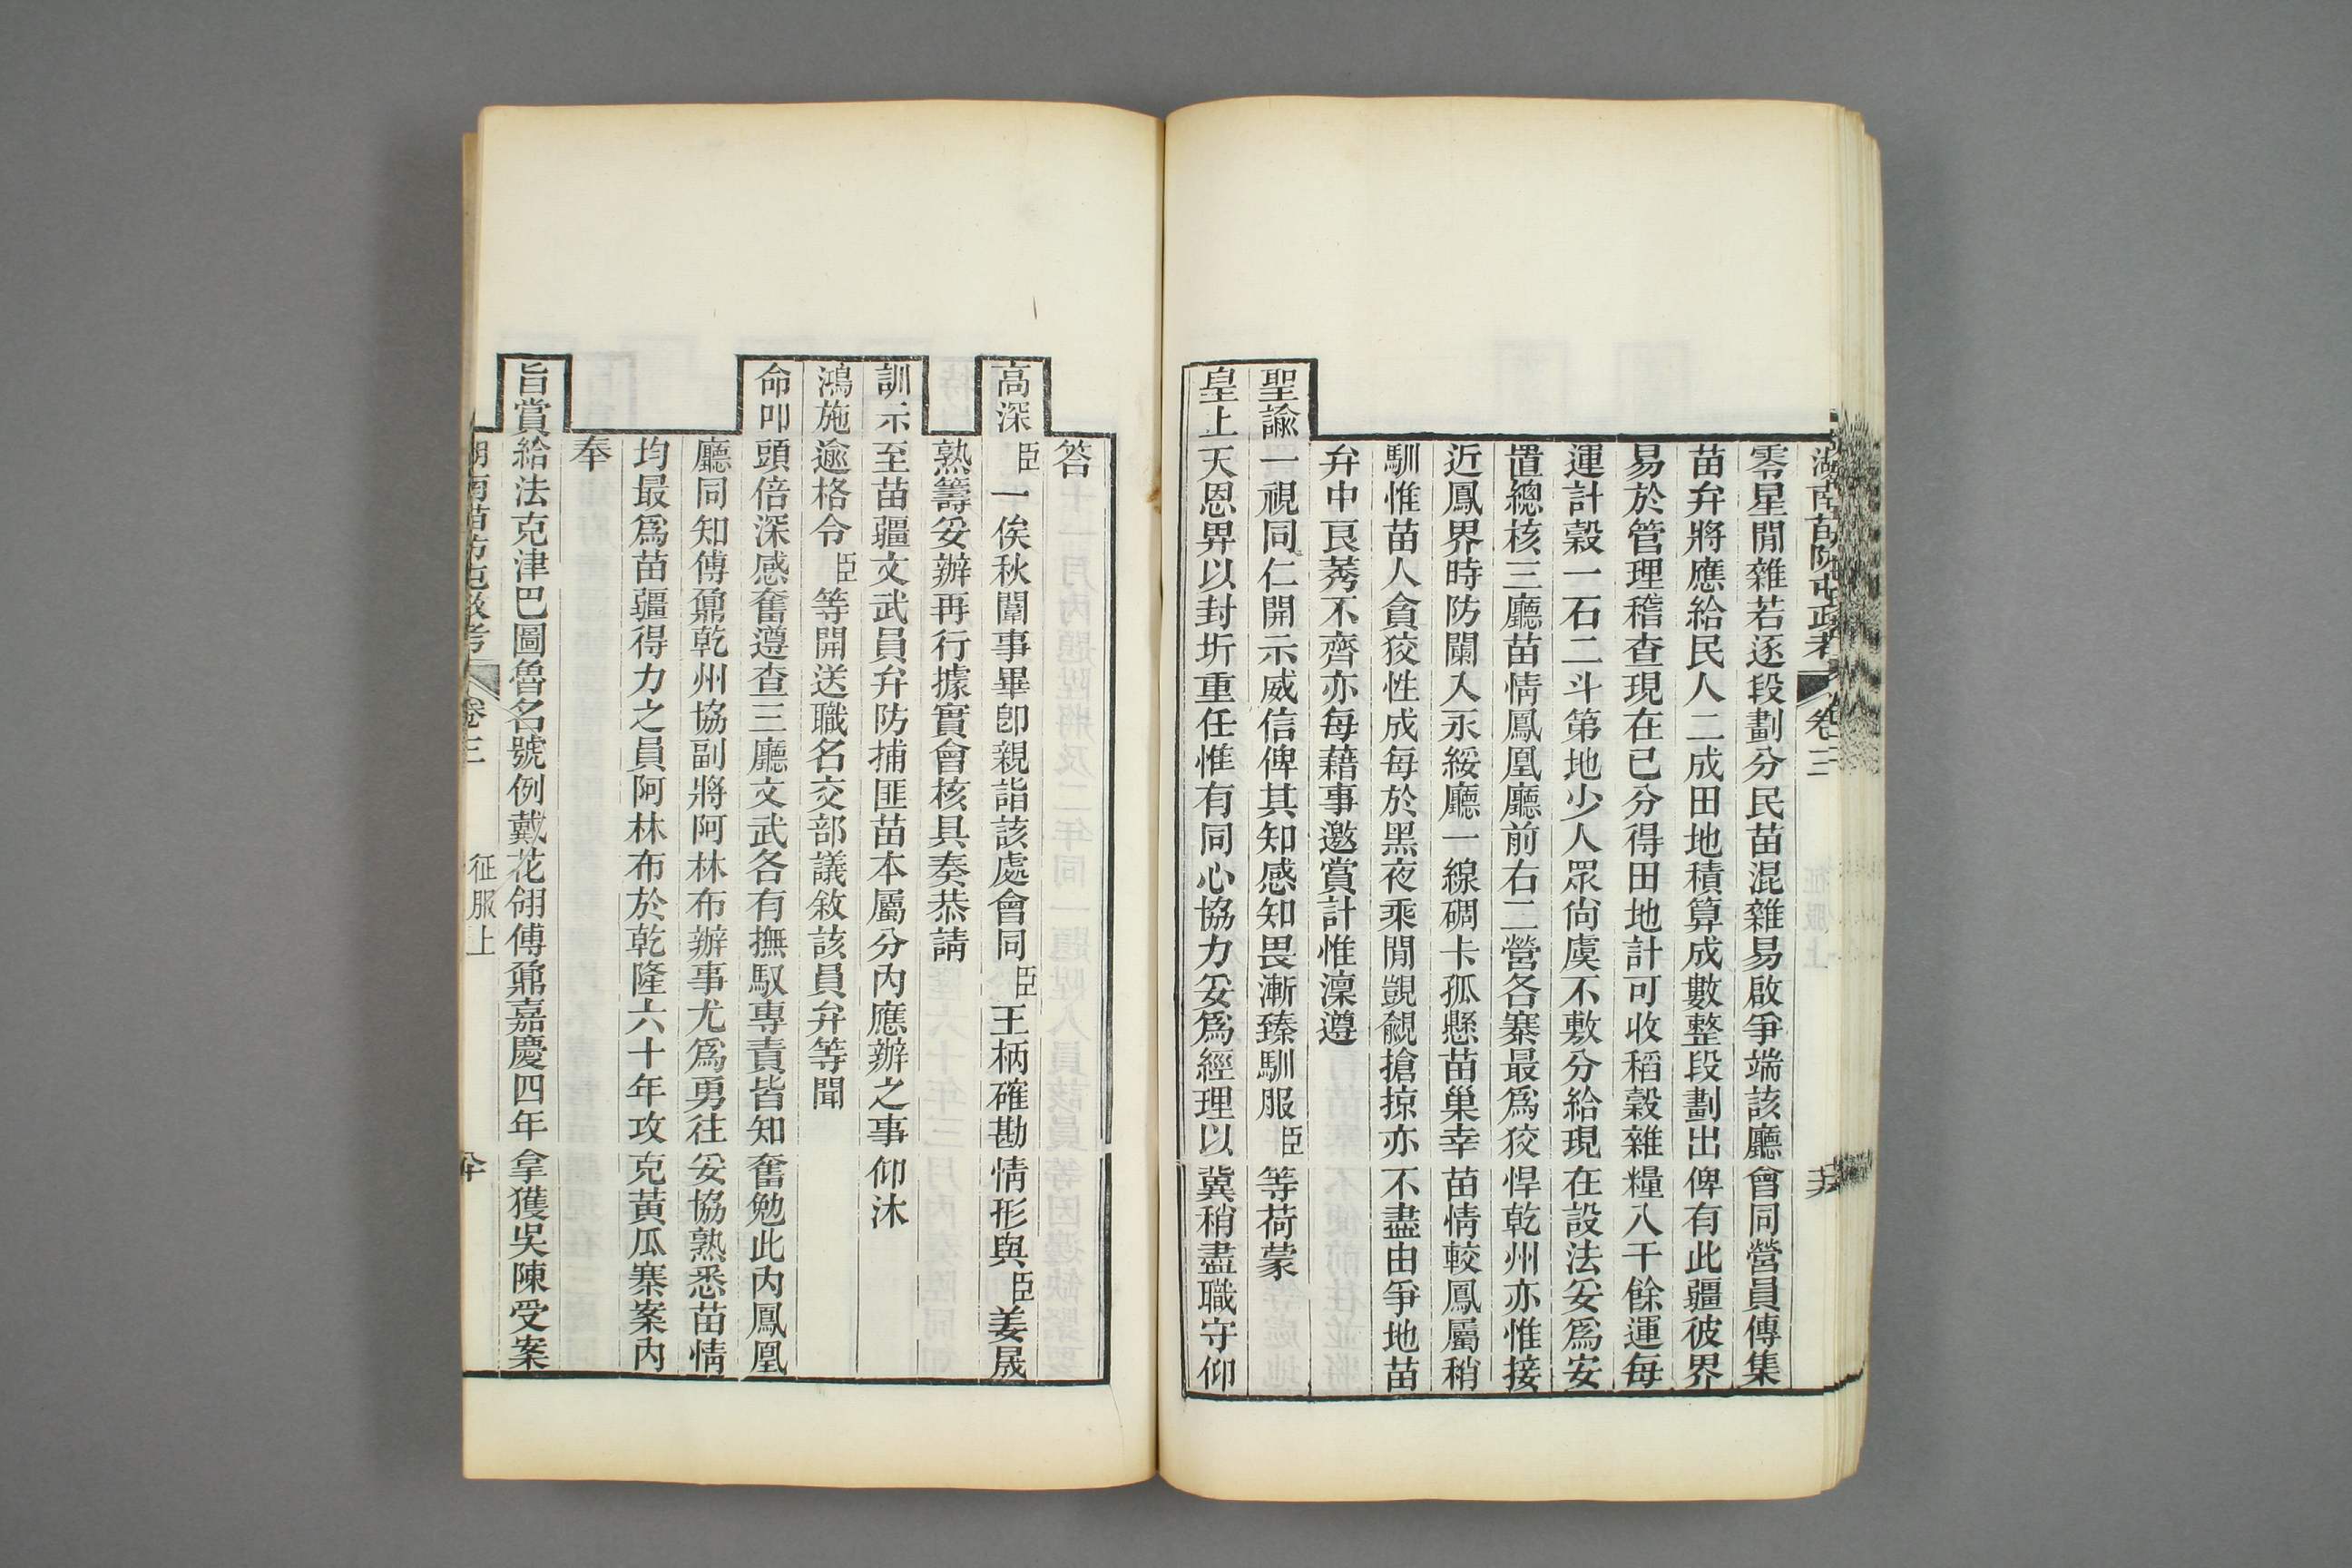 湖南苗防屯政考 卷三
零星閒雜若逐段劃分民苗混雜易啟爭端該廳會同營員傳集
苗弁將應給民人二成田地積算成數整段劃出俾有此疆彼界
易於管理稽查現在已分得田地計可收稻穀雜糧八千餘運每
運計穀一石二斗第地少人眾尙虞不敷分給現在設法妥爲安
置總核三廳苗情鳳凰廳前右二營各寨最爲狡悍乾州亦惟接
近鳳界時防闌入永綏廳一線碉卡孤懸苗巢幸苗情較鳳屬稍
馴惟苗人貪狡性成每於黑夜乘閒覬覦搶掠亦不盡由爭地苗
弁中良莠不齊亦每藉事邀賞計惟凜遵
聖諭一視同仁開示威信俾其知感知畏漸臻馴服臣等荷蒙
皇上天恩畀以封圻重任惟有同心協力妥爲經理以冀稍盡職守仰
答
高深臣一俟秋闈事畢卽親詣該處會同臣王柄確勘情形與臣姜晟
熟籌妥辦再行據實會核具奏恭請
訓示至苗疆文武員弁防捕匪苗本屬分內應辦之事仰沐
鴻施逾格令臣等開送職名交部議敘該員弁等聞
命叩頭倍深感奮遵查三廳文武各有撫馭專責皆知奮勉此內鳳凰
廳同知傅鼐乾州協副將阿林布辦事尤爲勇往妥協熟悉苗情
均最爲苗疆得力之員阿林布於乾隆六十年攻克黃瓜寨案內
奉
旨賞給法克津巴圖魯名號例戴花翎傅鼐嘉慶四年拿獲吳陳受案
湖南苗防屯政考 卷三 征服上